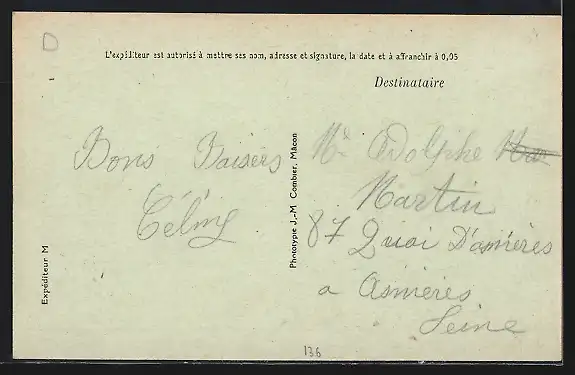 D
L'expéditeur est autorisé à mettre ses nom, adresse et signature, la date et à affranchir à 0,05
Destinataire
Bons Baisers
Céliny
Expéditeur M
Phototypie J.-M Combier, Mâcon
Mr Adolphe
Martin
87 Quai D'asnieres
a Asnieres
Seine
136